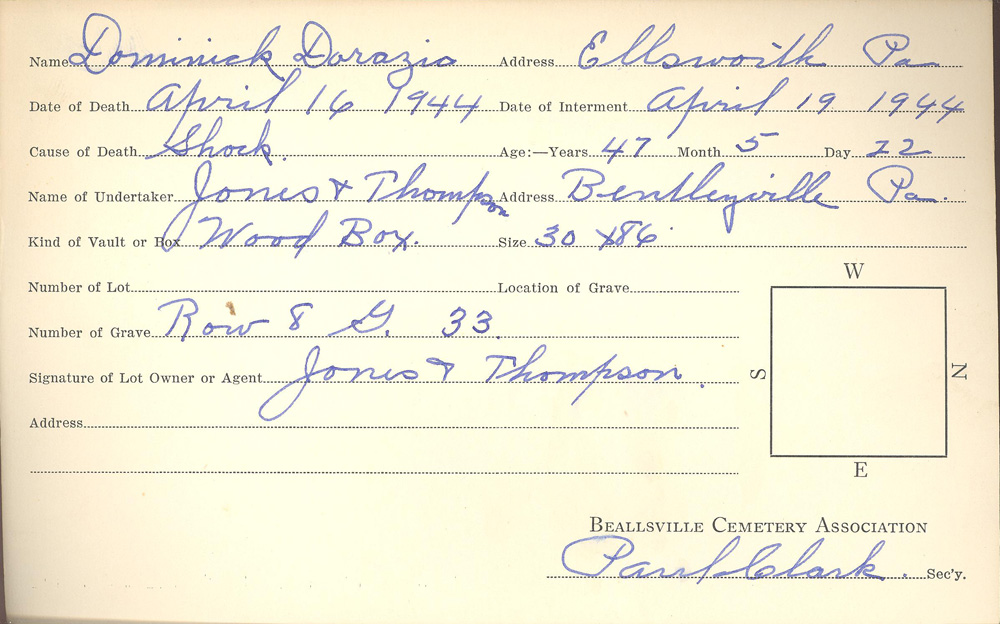 Name Dominick Dorazio Address Ellsworth Pa
Date of Death April 16 1944 Date of Interment April 19 1944
Cause of Death Shock. Age:—Years 47 Month 5 Day 22
Name of Undertaker Jones & Thompson Address Bentleyville Pa.
Kind of Vault or Box Wood Box. Size 30 x86
Number of Lot Location of Grave
W
Number of Grave Row 8 G. 33.
Signature of Lot Owner or Agent Jones & Thompson.
S N
Address
E
BEALLSVILLE CEMETERY ASSOCIATION
Paul Clark. Sec'y.